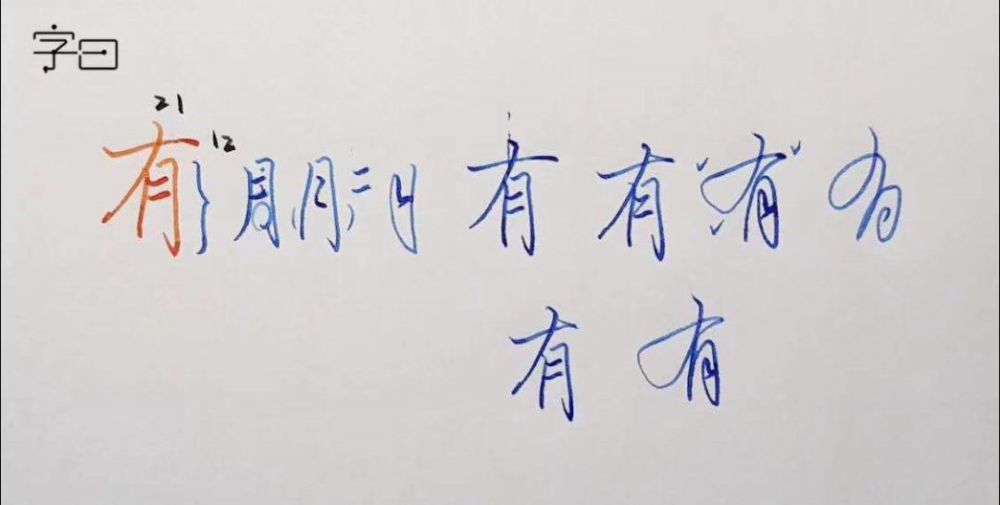 字曰
21
12
有 月 月 有 有 有 有
有 有